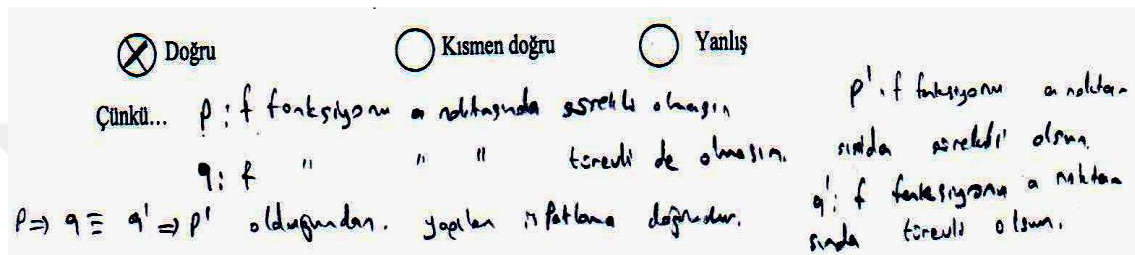 Doğru Kısmen doğru Yanlış
Çünkü... p: f fonksiyonu a noktasında sürekli olmasın
q: f " " " türevli de olmasın.
p ⇒ q ≡ q' ⇒ p' olduğundan. yapılan ispatlama doğrudur.
p': f fonksiyonu a noktasında sürekli olsun.
q': f fonksiyonu a noktasında türevli olsun.